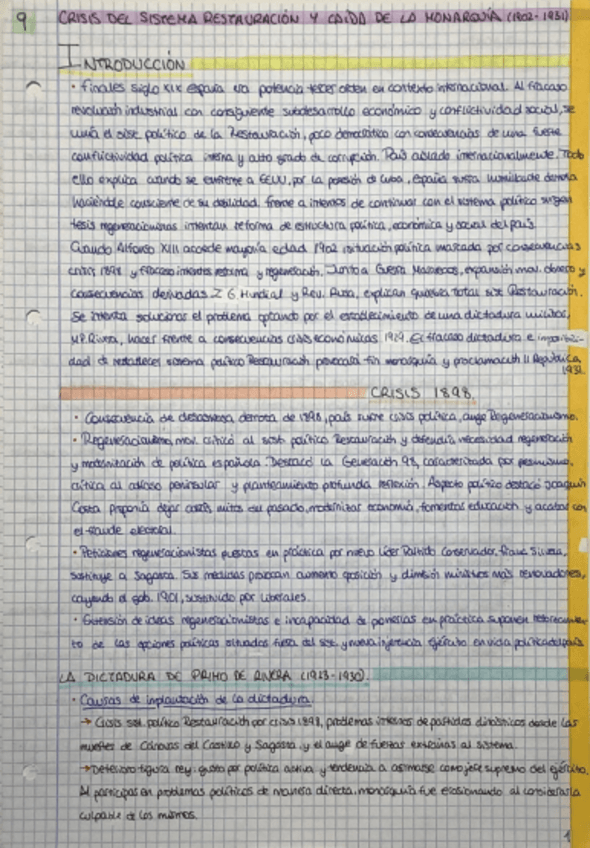 9 CRISIS DEL SISTEMA RESTAURACIÓN Y CAÍDA DE LA MONARQUÍA (1902-1931)
INTRODUCCIÓN
· Finales siglo XIX españa era potencia tercer orden en contexto internacional. Al fracaso
revolución industrial con consiguiente subdesarrollo económico y conflictividad social, se
unía el sist político de la Restauración, poco democrático con consecuencias de una fuerte
conflictividad política interna y alto grado de corrupción. País aislado internacionalmente. Todo
ello explica cuando se enfrente a EEUU, por la posesión de Cuba, España sufra humillante derrota
haciéndole consciente de su debilidad. Frente a intentos de continuar con el sistema político surgen
tesis regeneracionistas intentan reforma de estructura política, económica y social del país.
Cuando Alfonso XIII accede mayoría edad 1902 situación política marcada por consecuencias
crisis 1898 y fracaso intentos reforma y regeneración. Junto a Guerra Marruecos, expansión mov. obrero y
consecuencias derivadas I G. Mundial y Rev. Rusa, explican quiebra total sist Restauración.
Se intenta solucionar el problema optando por el establecimiento de una dictadura militar,
M.P. Rivera, hacer frente a consecuencias crisis económicas 1929. El fracaso dictadura e imposibili-
dad de restablecer sistema político Restauración provocará fin monarquía y proclamación II República
1931.
CRISIS 1898
· Consecuencia de desastrosa derrota de 1898, país sufre crisis política, auge Regeneracionismo.
· Regeneracionismo, mov. criticó al sist. político Restauración y defendía necesidad regeneración
y modernización de política española. Destacó la Generación 98, caracterizada por pesimismo,
crítica al atraso peninsular y planteamiento profunda reflexión. Aspecto político destacó Joaquín
Costa proponía dejar atrás mitos su pasado, modernizar economía, fomentar educación y acabar con
el fraude electoral.
· Peticiones regeneracionistas puestas en práctica por nuevo líder Partido Conservador, Silvela,
sustituye a Sagasta. Sus medidas provocan aumento oposición y dimisión ministros más renovadores,
cayendo el gob. 1901, sustituido por liberales.
· Extensión de ideas regeneracionistas e incapacidad de ponerlas en práctica suponen
to de las opciones políticas situadas fuera del sist. y nueva injerencia ejército en vida política del país
LA DICTADURA DE PRIMO DE RIVERA (1923-1930).
· Causas de implantación de la dictadura
→ Crisis sist. político Restauración por crisis 1898, problemas internos de partidos dinásticos desde las
muertes de Cánovas del Castillo y Sagasta, y el auge de fuerzas externas al sistema.
→ Deterioro figura rey: gusto por política activa y tendencia a afirmarse como jefe supremo del ejército.
Al participar en problemas políticos de manera directa, monarquía fue erosionando al considerarla
culpable de los mismos.
1